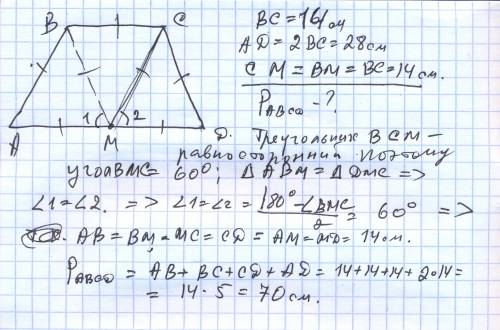 B C
1 2
A M D.
BC = 14 см
AD = 2BC = 28 см
CM = BM = BC = 14 см.
P_ABCD - ?
Треугольник BCM –
равносторонний Поэтому
угол BMC = 60°; △ ABM = △ DMC =>
∠1 = ∠2. => ∠1 = ∠2 = (180° - ∠BMC)/2 = 60° =>
AB = BM = MC = CD = AM = MD = 14 см.
P_ABCD = AB + BC + CD + AD = 14 + 14 + 14 + 2·14 =
= 14 · 5 = 70 см.